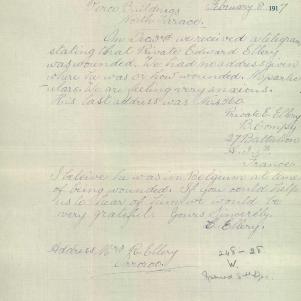 Verco Buildings February 8. 1917
North Terrace.
On Dec 3rd we received a telegram
stating that Private Edward Ellery
was wounded. We had no address given
where he was or how wounded. No partic
ulars. We are feeling very anxious.
His last address was No 5060.
Private E. Ellery
B. Compy
27 Battalion
France
I beleive he was in Belgium at time
of being wounded. If you could help
us to hear of him we would be
very grateful. Yours Sincerely.
E. Ellery.
Address Mrs E. Ellery
248-25
W.